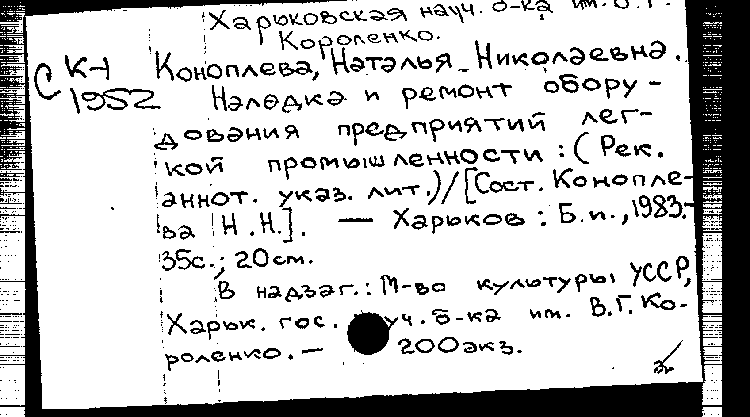 Харьковская науч. б-ка им. В.Г.
Короленко.
С К-1 Коноплева, Наталья Николаевна.
1952 Наладка и ремонт обору-
дования предприятий лег-
кой промышленности : (Рек.
аннот. указ. лит.)/[Сост. Конопле-
ва Н.Н.]. — Харьков : Б.и., 1983.-
35с.; 20см.
В надзаг.: М-во культуры УССР,
Харьк. гос. уч. б-ка им. В.Г. Ко-
роленко. — 200экз.